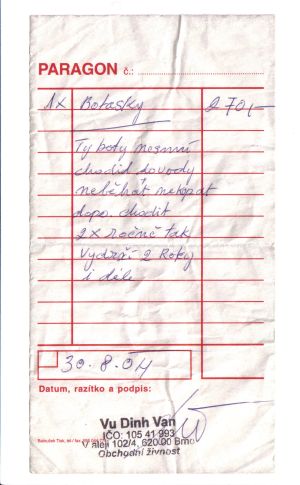 PARAGON č.:
1x Botasky 270,-
Ty boty nesmí
chodit do vody
neběhát nekopat
dopo. chodit
2x ročně tak
Vydrží 2 Roky
i déle
30.8.04
Datum, razítko a podpis:
Vu Dinh Van
IČO: 105 41 993
V aleji 102/4, 620 00 Brno
Obchodní živnost